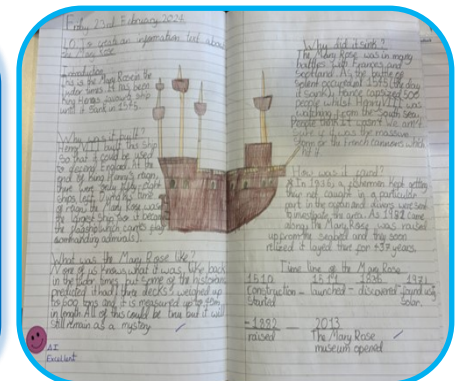 Friday 23rd of February 2024
LO: To create an information text about
the Mary Rose
Introduction
This is the Mary Rose in the
Tudor times. It has been
King Henrys favourite ship
until it sank in 1545.
Why was it built?
Henry VIII built this ship
So that it could be used
to defend England. At the
end of King Henry's reign,
there were fifty eight
ships left. During his time
of reign, the Mary Rose was
the largest ship too it became
the flagship (which carries
commanding admirals).
What was the Mary Rose like?
None of us knows what it was like back
in the tudor times, but some of the historians
predicted it had three decks, weighed up
to 600 tons and it is measured up to 45m
in length. All of this could be true but it will
still remain as a mystery.
Excellent
Why did it sink?
The Mary Rose was in many
battles with France and
Scotland. As the battle of
Solent occured in 1545 (the day
it sank), France captured 500
people whilst Henry VIII was
watching from the South Sea.
People think it wasn't
sure if it was the massive
storm or the French cannons which
hit it.
How was it found?
In 1836, a fisherman kept getting
their net caught in a particular
part in the ocean and divers were sent
to investigate the area. As 1982 came
along the Mary Rose was raised
up from the seabed and they soon
relized it layed there for 437 years.
Time line of the Mary Rose
1510 1511 1836 1971
construction - launched - discovered - found
started
- 1982 - 2013
raised The Mary Rose
museum opened